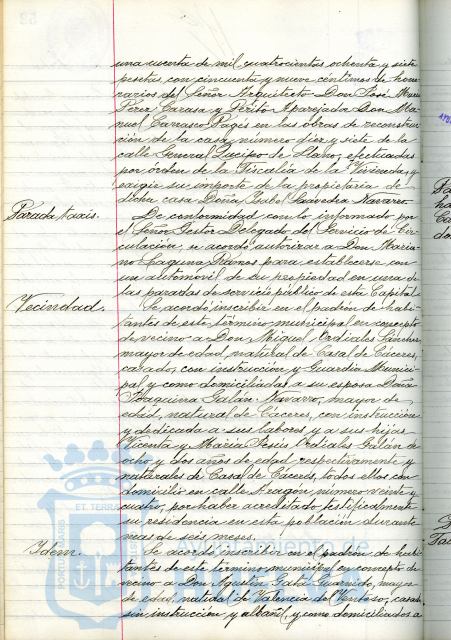 una cuenta de mil cuatrocientas ochenta y siete
pesetas, con cincuenta y nueve céntimos de hono-
rarios del Señor Arquitecto Don José María
Pérez Carasa y Perito Aparejador Don Ma-
nuel Carrasco Pagés en las obras de reconstruc-
ción de la casa número diez y siete de la
calle General Queipo de Llano, efectuadas
por orden de la Fiscalía de la Vivienda, y
exigir su importe de la propietaria de
dicha casa Doña Isabel Saavedra Navarro.
Parada taxis. De conformidad con lo informado por
el Señor Gestor Delegado del Servicio de Cir-
culación, se acordó autorizar a Don Maria-
no Laguna Ramos para establecerse con
un automóvil de su propiedad en una de
las paradas de servicio público de esta Capital.
Vecindad. Se acordó inscribir en el padrón de habi-
tantes de este término municipal en concepto
de vecino a Don Miguel Ordiales Sánchez
mayor de edad, natural de Casal de Cáceres,
casado, con instrucción y Guardia Munici-
pal y como domiciliadas a su esposa Doña
Joaquina Galán Navarro, mayor de
edad, natural de Cáceres, con instrucción
y dedicada a sus labores y a sus hijas
Vicenta y María Jesús Ordiales Galán de
ocho y dos años de edad respectivamente y
naturales de Casal de Cáceres, todos ellos con
domicilio en calle Aragón, número veinte y
cuatro, por haber acreditado testificalmente
su residencia en esta población durante
mas de seis meses.
Idem. Se acordó inscribir en el padrón de habi-
tantes de este término municipal en concepto de
vecino a Don Agustín Gata Guarnido, mayor
de edad, natural de Valencia del Ventoso, casado
sin instrucción y albañil, y como domiciliados a